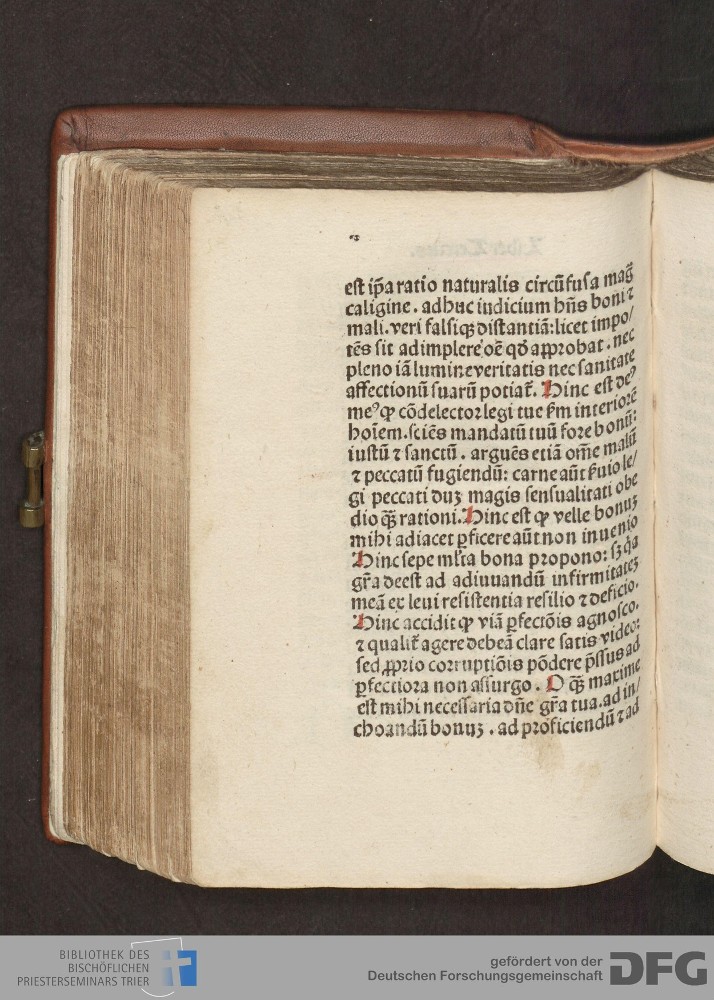 est ip̄a ratio naturalis circūfusa maḡ
caligine . adhuc iudicium hn̄s boni ⁊
mali . veri falsiqꝫ distantiā: licet impo/
tēs sit adimplere oē qđ aꝓrobat . nec
pleno iā lumine veritatis nec sanitate
affectionū suarū potiaṫ. Hinc est deꝰ
meꝰ ꝙ cōdelector legi tue ẜm interiorē
hoīem . sciēs mandatū tuū fore bonū:
iustū ⁊ sanctū . arguēs etiā om̄e malū
⁊ peccatū fugiendū: carne aūt ẜuio le/
gi peccati duꝫ magis sensualitati obe
dio qꝫ̄ rationi. Hinc est ꝙ velle bonuꝫ
mihi adiacet ꝑficere aūt non inuenio
Hinc sepe ml̄ta bona propono: sꝫ q̄a
gr̄a deest ad adiuuandū infirmitateꝫ
meā ex leui resistentia resilio ⁊ deficio.
Hinc accidit ꝙ viā ꝑfectōis agnosco.
⁊ qualiṫ agere debeā clare satis video:
sed ꝓprio corruptiōis pōdere p̄ssus ad
ꝑfectiora non assurgo . O qꝫ̄ maxime
est mihi necessaria dn̄e gr̄a tua . ad in/
choandū bonuꝫ . ad proficiendū ⁊ ad
BIBLIOTHEK DES
BISCHÖFLICHEN
PRIESTERSEMINARS TRIER
gefördert von der
Deutschen Forschungsgemeinschaft DFG